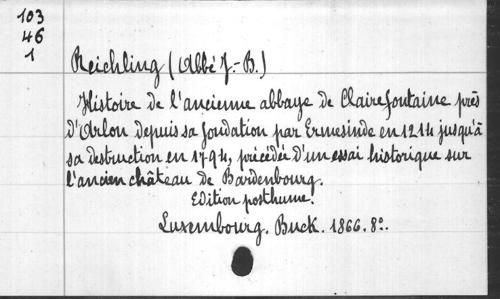 103
46
1
Reichling (Abbé J.-B.)
Histoire de l'ancienne abbaye de Clairefontaine près
d'Arlon depuis sa fondation par Ermesinde en 1214 jusqu'à
sa destruction en 1794, précédée d'un essai historique sur
l'ancien château de Bardenbourg.
Edition posthume.
Luxembourg. Buck. 1866. 8º.